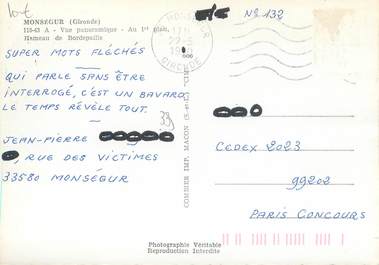 MONSEGUR (Gironde)
110-43 A - Vue panoramique - Au 1er plan,
Hameau de Bordepaille
SUPER MOTS FLÉCHÉS
QUI PARLE SANS ÊTRE
INTERROGÉ, C'EST UN BAVARD
LE TEMPS RÉVÈLE TOUT.
33
JEAN-PIERRE
, RUE DES VICTIMES
33580 MONSÉGUR
MONSEGUR
GIRONDE
COMBIER IMP. MACON
N° 132
CEDEX 2023
99202
PARIS CONCOURS
Photographie Véritable
Reproduction Interdite